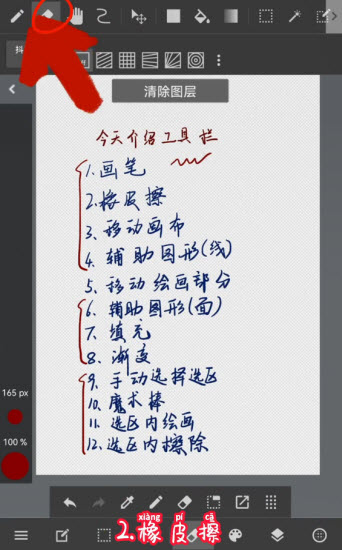 抖
清除图层
今天介绍工具栏
1.画笔
2.橡皮擦
3.移动画布
4.辅助图形(线)
5.移动绘画部分
6.辅助图形(面)
7.填充
8.渐变
9.手动选择选区
10.魔术棒
11.选区内绘画
12.选区内擦除
165 px
100 %
xiàng pí cā
2.橡皮擦